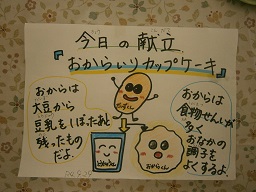 今日の献立
『おからいりカップケーキ』
おからは
大豆から
豆乳をしぼったあと
残ったもの
だよ。
おからは
食物せんいが
多く
おなかの
調子を
よくするよ。
とうにゅう
おからくん